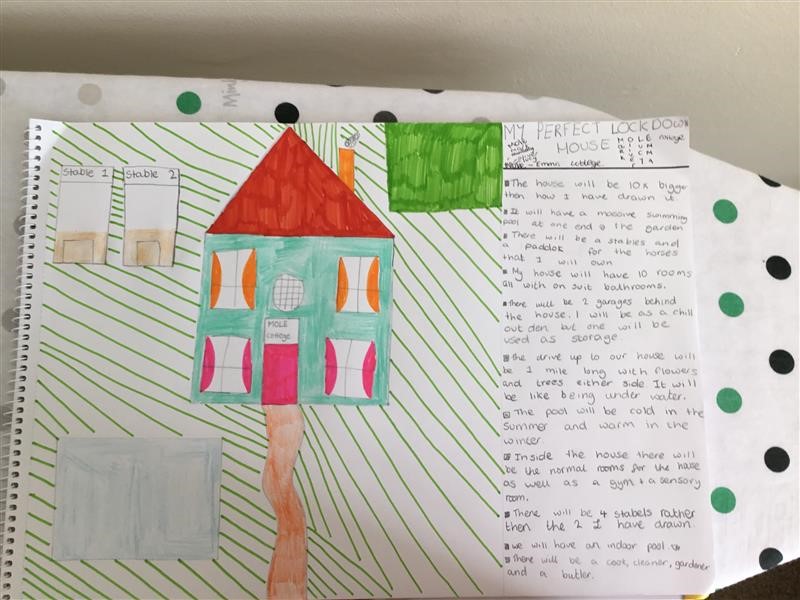 Mini
MY PERFECT LOCKDOWN
HOUSE
MOLE cottage
Emma cottege
Stable 1
Stable 2
MOLE
cottege
The house will be 10x bigger
then how I have drawn it.
It will have a massive swimming
pool at one end of the garden
There will be a stables and
a paddok for the horses
that I will own
My house will have 10 rooms
all with on suit bathrooms.
There will be 2 garages behind
the house. 1 will be as a chill
out den but one will be
used as storage.
the drive up to our house will
be 1 mile long with flowers
and trees either side. It will
be like being under water.
The pool will be cold in the
Summer and warm in the
winter
Inside the house there will
be the normal rooms for the house
as well as a gym + a sensory
room.
There will be 4 stabels rather
then the 2 I have drawn.
we will have an indoor pool.
There will be a cook, cleaner, gardener
and a butler.